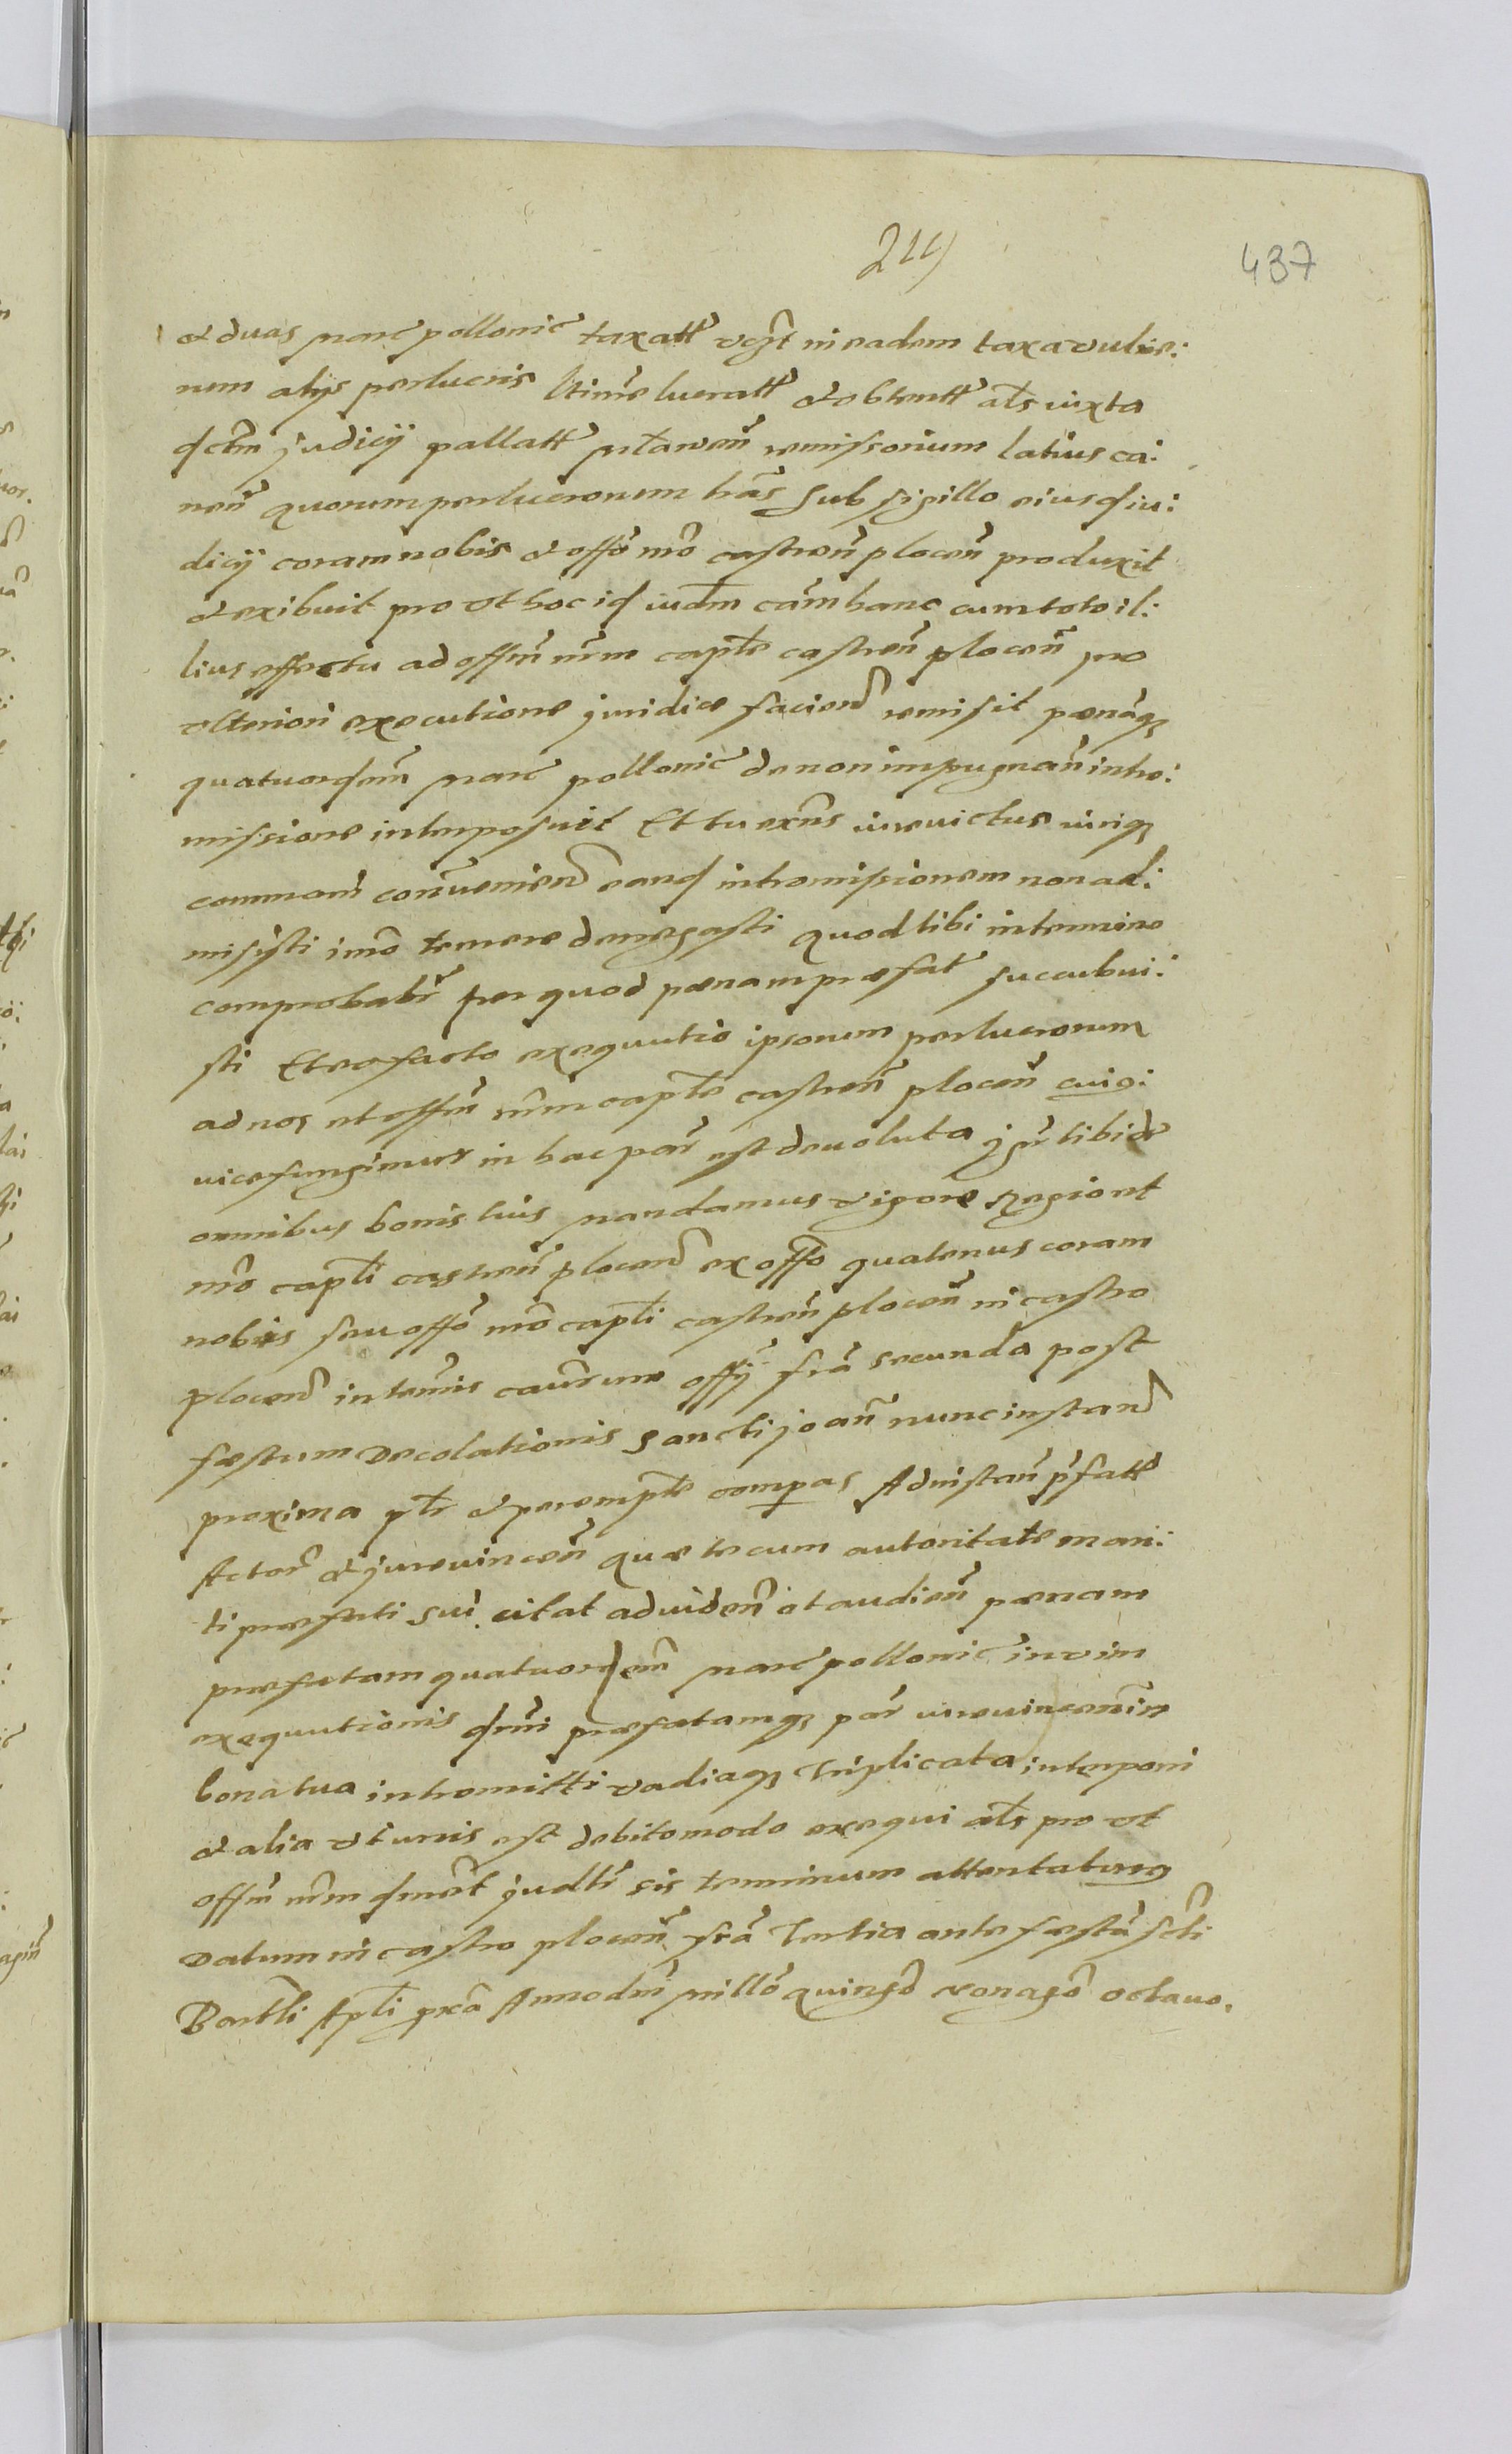 219
437
& duas marc pollonic taxatt vgr̃t in eadem taxa vulne:
rum alijs perlucris ltime lucratt & obtentt als iuxta
dctm judicij pallatt mlawen̄ remissorium latius ca:
nen̄ quorum perlucrorum lras sub sigillo eiusd iu:
dicij coram nobis & offo nro castren̄ plocen̄ produxit
& exibuit pro vt hoc id iudm cam̄ hanc cum toto il:
lius effectu ad offm nrm caple castren̄ plocen̄ pro
vlteriori executione juridice facien̄ remisit pænāq
quatuordem̄ marc pollonic de non impugnan̄ intro:
missione interposuit Et tu exn̄s iurevictus iuriq
communi contravenien̄ eand intromissionem non ad:
misisti imo temere denegasti quod tibi in termino
comprobabr̄ per quod pænam præfat succubui:
sti Et eo facto exequutio ipsorum perlucrorum
ad nos et offm nrm caple castren̄ plocen̄ cuig:
vice fungimur in hac par̄ est devoluta jgr tibi de
omnibus bonis tuis mandamus vigore Regio et
nro capli castren̄ plocen̄ ex offo quatenus coram
nobis seu offo nro capli castren̄ plocen̄ in castro
plocen̄ in termis caurum offij fra secunda post
fæstum Decolationis Sancti joan̄ nunc instan̄
proxima plr & perempte compas Ad instan̄ pfatt
Actor̄ & jurevincen̄ quæ te cum autoritate mari:
ti præfati sui citat ad viden̄ et audien̄ pænam
præfatam quatuordem̄ marc pollonic in vim
exequutionis dmi præfatamq par̄ iurevincen̄ in
bona tua intromitti vadiaq triplicata interponi
& alia vt iuris est debito modo exequi als pro vt
offm nrm dmet judlr sis terminum attentaturg
Datum in castro plocen̄ fra tertia ante fæstū scti
Bartli Apli pxa Anno dni millo quingo nonago octauo.